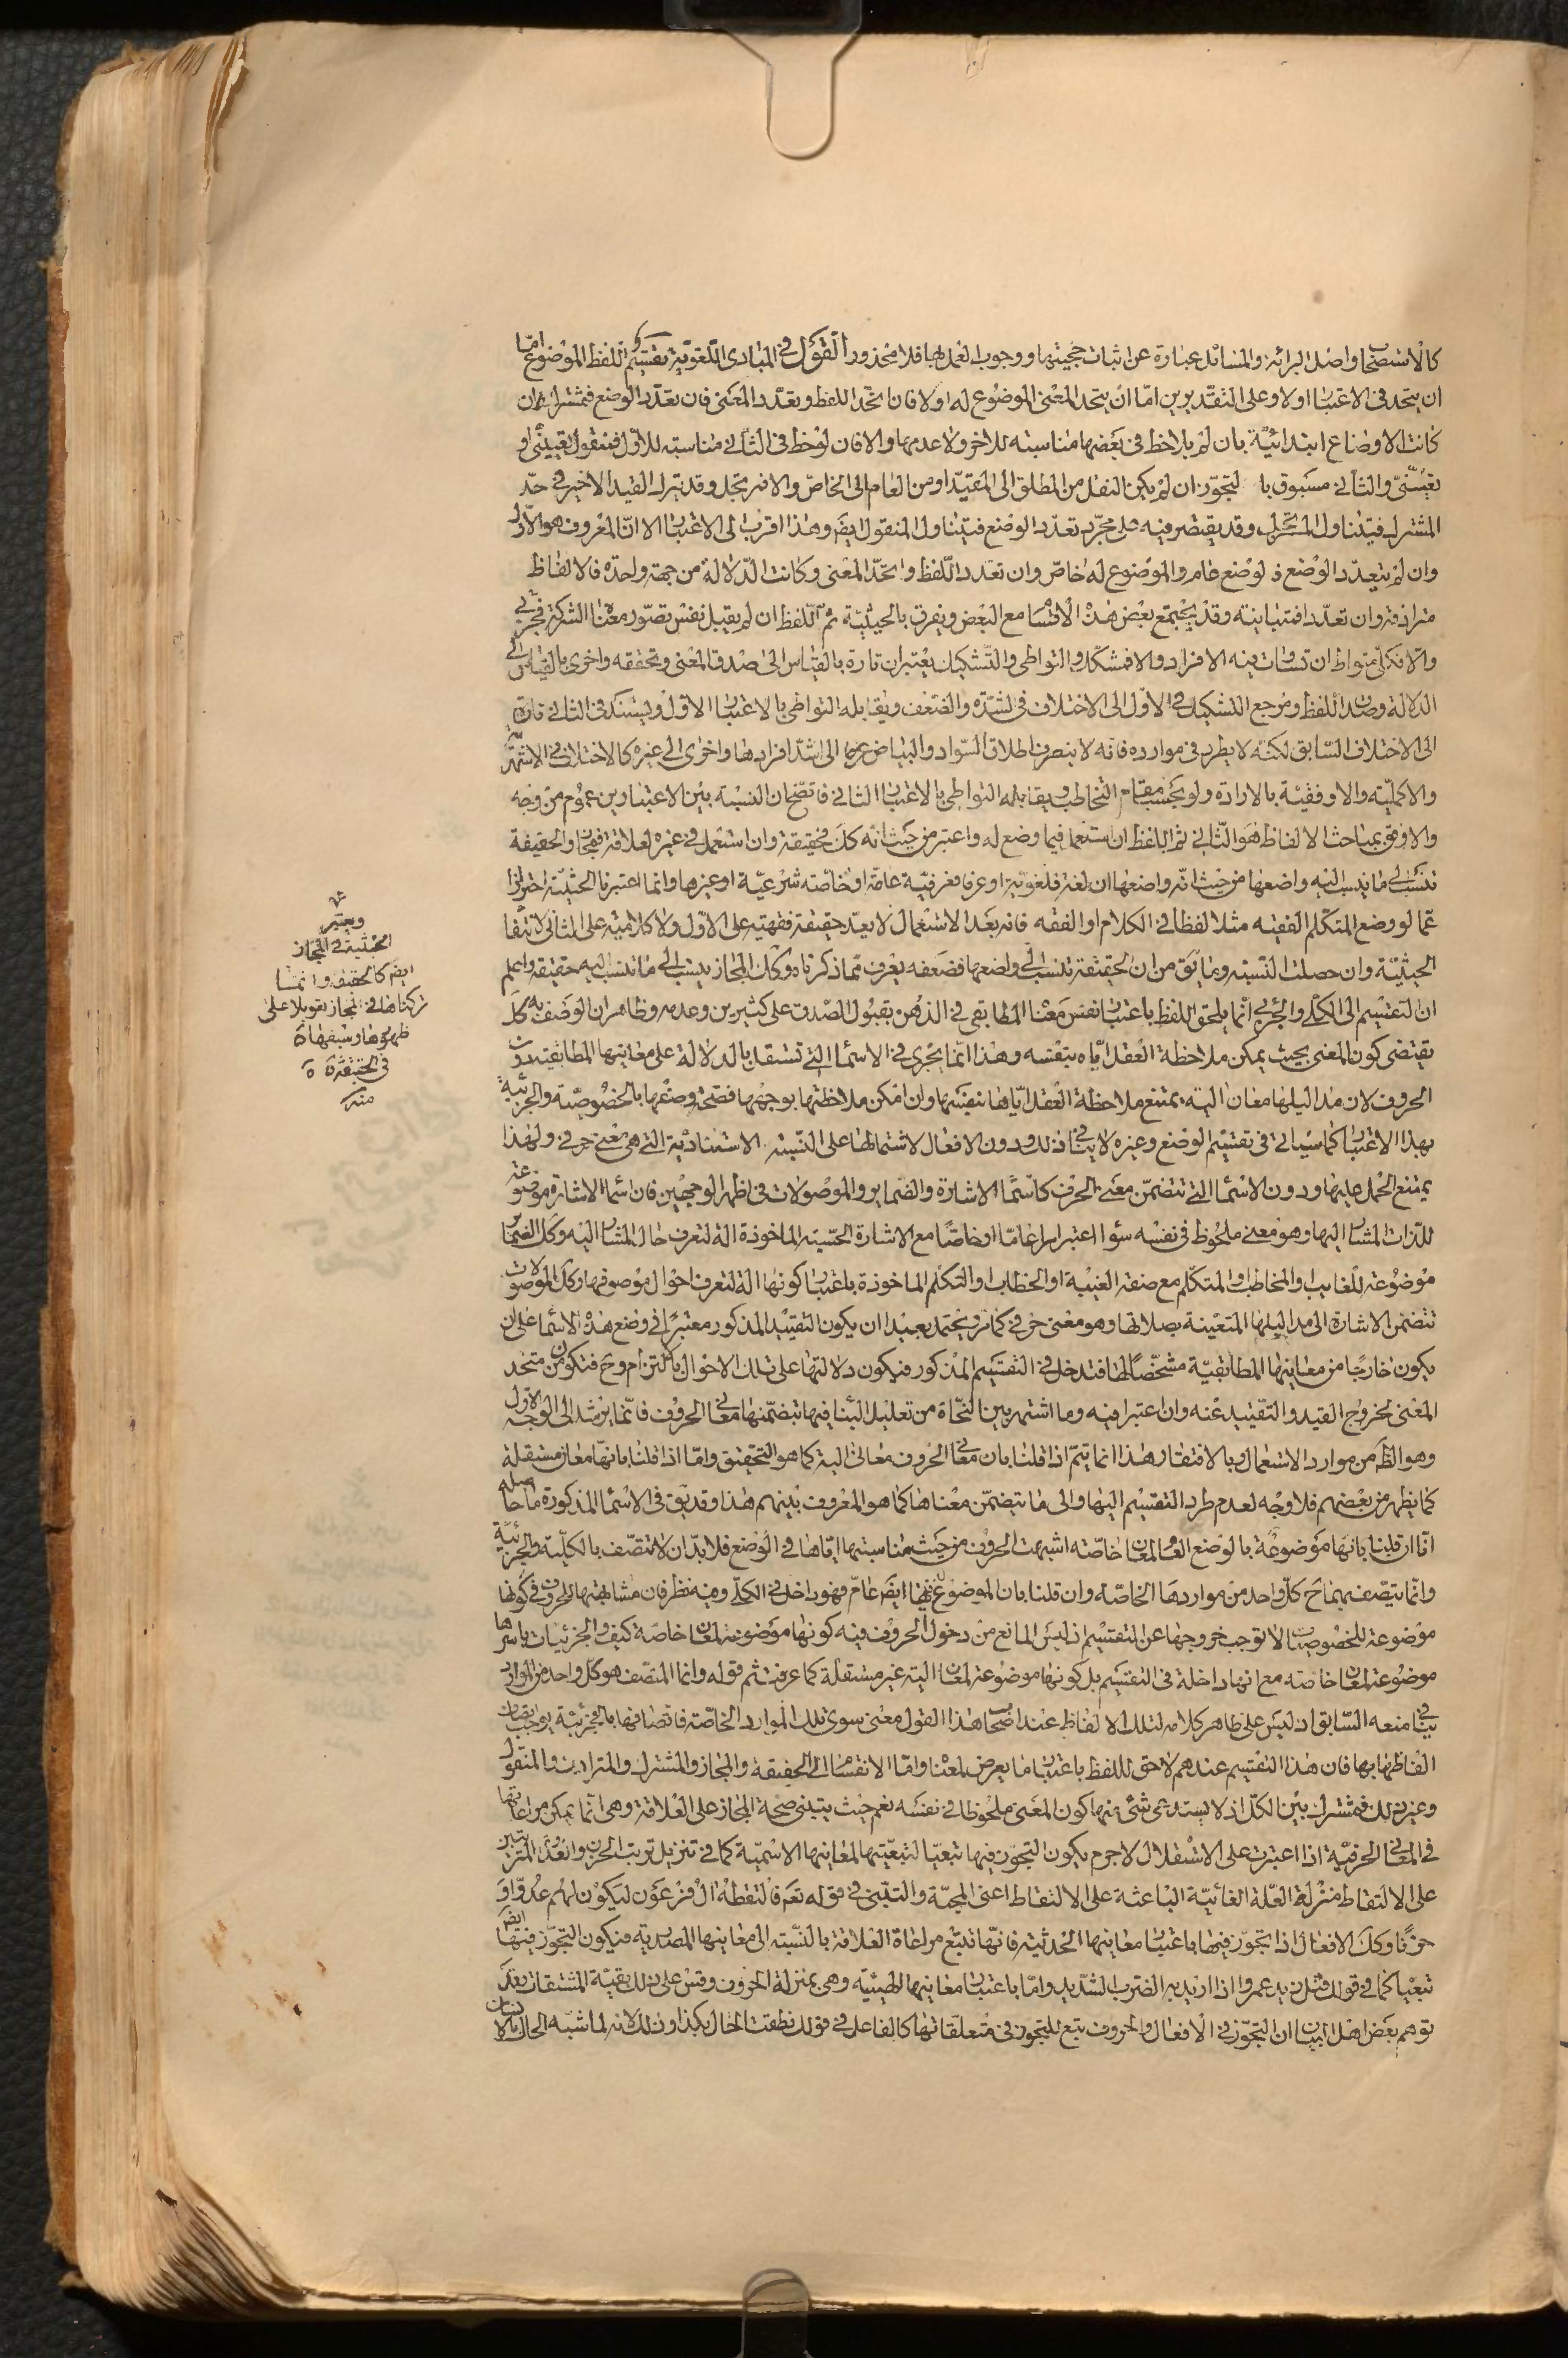 كالاستصحاب واصل البرائة والمسائل عبارة عن اثبات حجيتها ووجوب العمل بها فلا محذور القول في المبادى اللغوية تقسيم اللفظ الموضوع امّا
ان يتحد في الاعتبار اولا وعلى التقديرين امّا ان يتحد المعنى الموضوع له اولا فان اتحد اللفظ وتعدد المعنى فان تعدّد الوضع فمشترك ان
كانت الاوضاع ابتدائيّة بان لم يلاحظ في بعضها مناسبته للاخر ولا عدمها والا فان لوحظ في الثاني مناسبته للاوّل فمنقول تعييني او
تعيّنيّ والثاني مسبوق با لتجوّز ان لم يكن النقل من المطلق الى المقيّد او من العام الى الخاصّ والا فمرتجل وقد يترك القيد الاخير في حدّ
المشترك فيتناول المرتجل وقد يقتصر فيه على مجرّد تعدّد الوضع فيتناول المنقول ايضَ وهذا اقرب الى الاعتبار الا انّ المعروف هو الاوّل
وان لم يتعدّد الوضع فالوضع عام والموضوع له خاصّ وان تعدد اللّفظ واتحّد المعنى وكانت الدّلالة من جهة واحدة فالالفاظ
مترادفة وان تعدّدا فمتباينة وقد يجتمع بعض هذه الاقسام مع البعض ويفرق بالحيثيّة ثم اللّفظ ان لم يقبل نفس تصوّر معناه الشركة فجزئي
والا فكلّي متواط ان تساوت فيه الافراد والا فمشكّك والتواطى والتّشكيك يعتبران تارة بالقياس الى صدق المعنى وتحققه واخرى بالقياس الى
الدلالة وصدق اللفظ ومرجع التشكيك في الاوّل الى الاختلاف في الشدّة والضّعف ويقابله التواطى بالاعتبار الاوّل ويستند في الثاني تارة
الى الاختلاف السّابق لكنّه لا يطرد في موارده فانّه لا ينصرف اطلاق السّواد والبياض عرفا الى اشدّ افرادها واخرى الى غيره كالاختلاف في الاشتهار
والاكمليّة والاوفقيّة بالارادة ولو بحسب مقام التخاطب ويقابله التواطى بالاعتبار الثاني فاتضّح ان النسبة بين الاعتبارين عموم من وجه
والاوفق بمباحث الالفاظ هو الثّاني ثم اللفظ ان استعمل فيما وضع له واعتبر من حيث انّه كذلك فحقيقة وان استعمل في غيره لعلاقة فمجاز والحقيقة
تنسب الى ما ينسب اليه واضعها من حيث انّه واضعها ان لغة فلغويّة او عرفا فعرفيّة عامّة او خاصّة شرعيّة او غيرها وانما اعتبرنا الحيثيّة احترازا
عمّا لو وضع المتكلّم الفقيه مثلا لفظا في الكلام او الفقه فانّه بعد الاستعمال لا يعدّ حقيقة فقهيّة على الاوّل ولا كلاميّة على الثّاني لانتفاء
الحيثيّة وان حصلت النّسبة وما يق من ان الحقيقة تنسب الى واضعها فضعفه يعرف ممّا ذكرناه وكذلك المجاز ينسب الى ما تنسب اليه حقيقته واعلم
ان التقسيم الى الكلّي والجزئي انّما يلحق اللفظ باعتبار نفس معناه المطابقى في الذهن بقبول الصّدق على كثيرين وعدمه وظاهر ان الوصف به كذلك
يقتضى كون المعنى بحيث يمكن ملاحظة العقل ايّاه بنفسه وهذا انّما يجرى في الاسماء التي تستقل بالدلالة على معانيها المطابقيّة دون
الحروف لان مداليلها معان اليّة يمتنع ملاحظة العقل ايّاها بنفسها وان امكن ملاحظتها بوجهها فصحّة وصفها بالخصوصيّة والجزئيّة
بهذا الاعتبار كما سيأتي في تقسيم الوضع وغيره لا ينافي ذلك ودون الافعال لاشتمالها على النّسبة الاسناديّة التي هي معنى حرفي ولهذا
يمتنع الحمل عليها ودون الاسماء التي تتضمّن معنى الحرف كاسماء الاشارة والضماير والموصولات في اظهر الوجهين فان اسماء الاشارة موضوعة
للذات المشار اليها وهو معنى ملحوظ في نفسه سواء اعتبر امرا عامّا او خاصّا مع الاشارة الحسّية الماخوذة الة لتعرف حال المشار اليه وكذلك الضمائر
موضوعة للغايب والمخاطب والمتكلّم مع صفة الغيبة او الخطاب او التكلّم الماخوذة باعتبار كونها الة لتعرف احوال موصوفها وكذلك الموصولات
تتضمن الاشارة الى مداليلها المتعينة بصلاتها وهو معنى حرفي كما مر ويحتمل بعيدا ان يكون التقييد المذكور معتبرا في وضع هذه الاسماء على ان
يكون خارجًا من معانيها المطابقيّة مشخّصًا لها فتدخل في التقسيم المذكور فيكون دلالتها على تلك الاحوال بالالتزام وح فتكون من متحد
المعنى لخروج القيد والتقييد عنه وان اعتبرا فيه وما اشتهر بين النحّاة من تعليل البناء فيها بتضمّنها معاني الحروف فانّما يرشد الى الوجه الاول
وهو الظَ من موارد الاستعمال وبالافتقار وهذا انما يتمّ اذا قلنا بان معاني الحروف معاني الية كما هو التحقيق وامّا اذا قلنا بانهّا معان مستقلة
كما يظهر من بعضهم فلا وجه لعدم طرد التقسيم اليها والى ما يتضمّن معناها كما هو المعروف بينهم هذا وقد يق في الاسماء المذكورة ما حاصله
انّا ان قلنا بانها موضوعة بالوضع العام لمعان خاصّة اشبهت الحروف من حيث مناسبتها ايّاها في الوضع فلا بدّ ان لا تتّصف بالكليّة والجزئيّة
وانّما يتّصف بهما ح كلّ واحد من مواردها الخاصّة وان قلنا بان الموضوع له فيها ايضَ عامّ فهو داخل في الكلّي وفيه نظر فان مشابهتها للحروف في كونها
موضوعة للخصوصيات لا توجب خروجها عن التقسيم اذ ليس المانع من دخول الحروف فيه كونها موضوعة لمعان خاصّة كيف والجزئيات باسرها
موضوعة لمعان خاصّه مع انها داخلة في التقسيم بل كونها موضوعة لمعان الية غير مستقلّة كما عرفت ثم قوله وانما المتصّف هو كل واحد من الموارد
ينافي منعه السّابق اذ ليس على ظاهر كلامه لتلك الالفاظ عند اصحاب هذا القول معنى سوى تلك الموارد الخاصّة فاتصافها بالجزئية يوجب اتصاف
الفاظها بها فان هذا التقسيم عندهم لاحق للفظ باعتبار ما يعرض لمعناه وامّا الانقسام الى الحقيقة والمجاز والمشترك والمترادف والمنقول
وغير ذلك فمشترك بين الكلّ اذ لا يستدعى شئ منها كون المعنى ملحوظا في نفسه نعم حيث يبتنى صحّة المجاز على العلاقة وهى انّما يمكن مراعاتها
في المعاني الحرفيّة اذا اعتبرت على الاستقلال لا جرم يكون التجوّز فيها تبعيّا لتبعيّتها لمعانيها الاسميّة كما في تنزيل ترتب الحزن والعدوّ المترتبين
على الالتقاط منزلة العلّة الغائيّة الباعثة على الالتقاط اعنى المحبّة والتبنّى في قوله تعَ فالتقطه ال فرعون ليكون لهم عدوّا و
حزنًا وكذلك الافعال اذا تجوّز فيها باعتبار معانيها الحدثيّة فانّها تتبع مراعاة العلاقة بالنّسبة الى معانيها المصدرية فيكون التجوّز فيها ايضَ
تبعيّا كما في قولك قتل زيد عمروا اذا اريد به الضرب الشّديد وامّا باعتبار معانيها الهيئيّة وهي بمنزلة الحروف وقس على ذلك بقيّة المشتقات بعد
توهم بعض اهل البيان ان التجوّز في الافعال والحروف يتبع للتجوز في متعلّقاتها كالفاعل في قولك نطقت الحال بكذا وذلك لانه لما شبّه الحال بالانسان
ويعتبر
الحيثية في المجاز
ايضَ كالحقيقة وانما
تركناها في المجاز تعويلا على
ظهورها وسبقها
في الحقيقة
منه